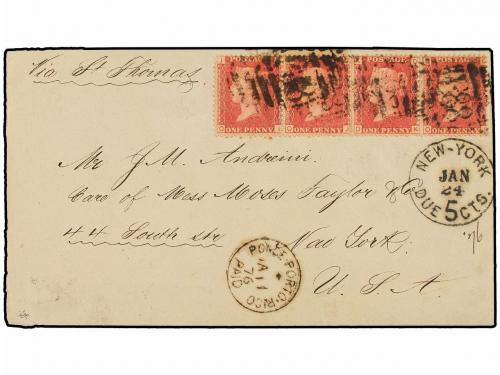 Via St Thomas
POSTAGE
ONE PENNY ONE PENNY ONE PENNY ONE PENNY
NEW-YORK
JAN
24
DUE 5 CTS.
'76
Mr J. M. Andreini.
Care of Mess Moses Taylor & Co
44 South str New York.
U. S. A.
PONCE-PORTO-RICO
JA 11
76
PAID